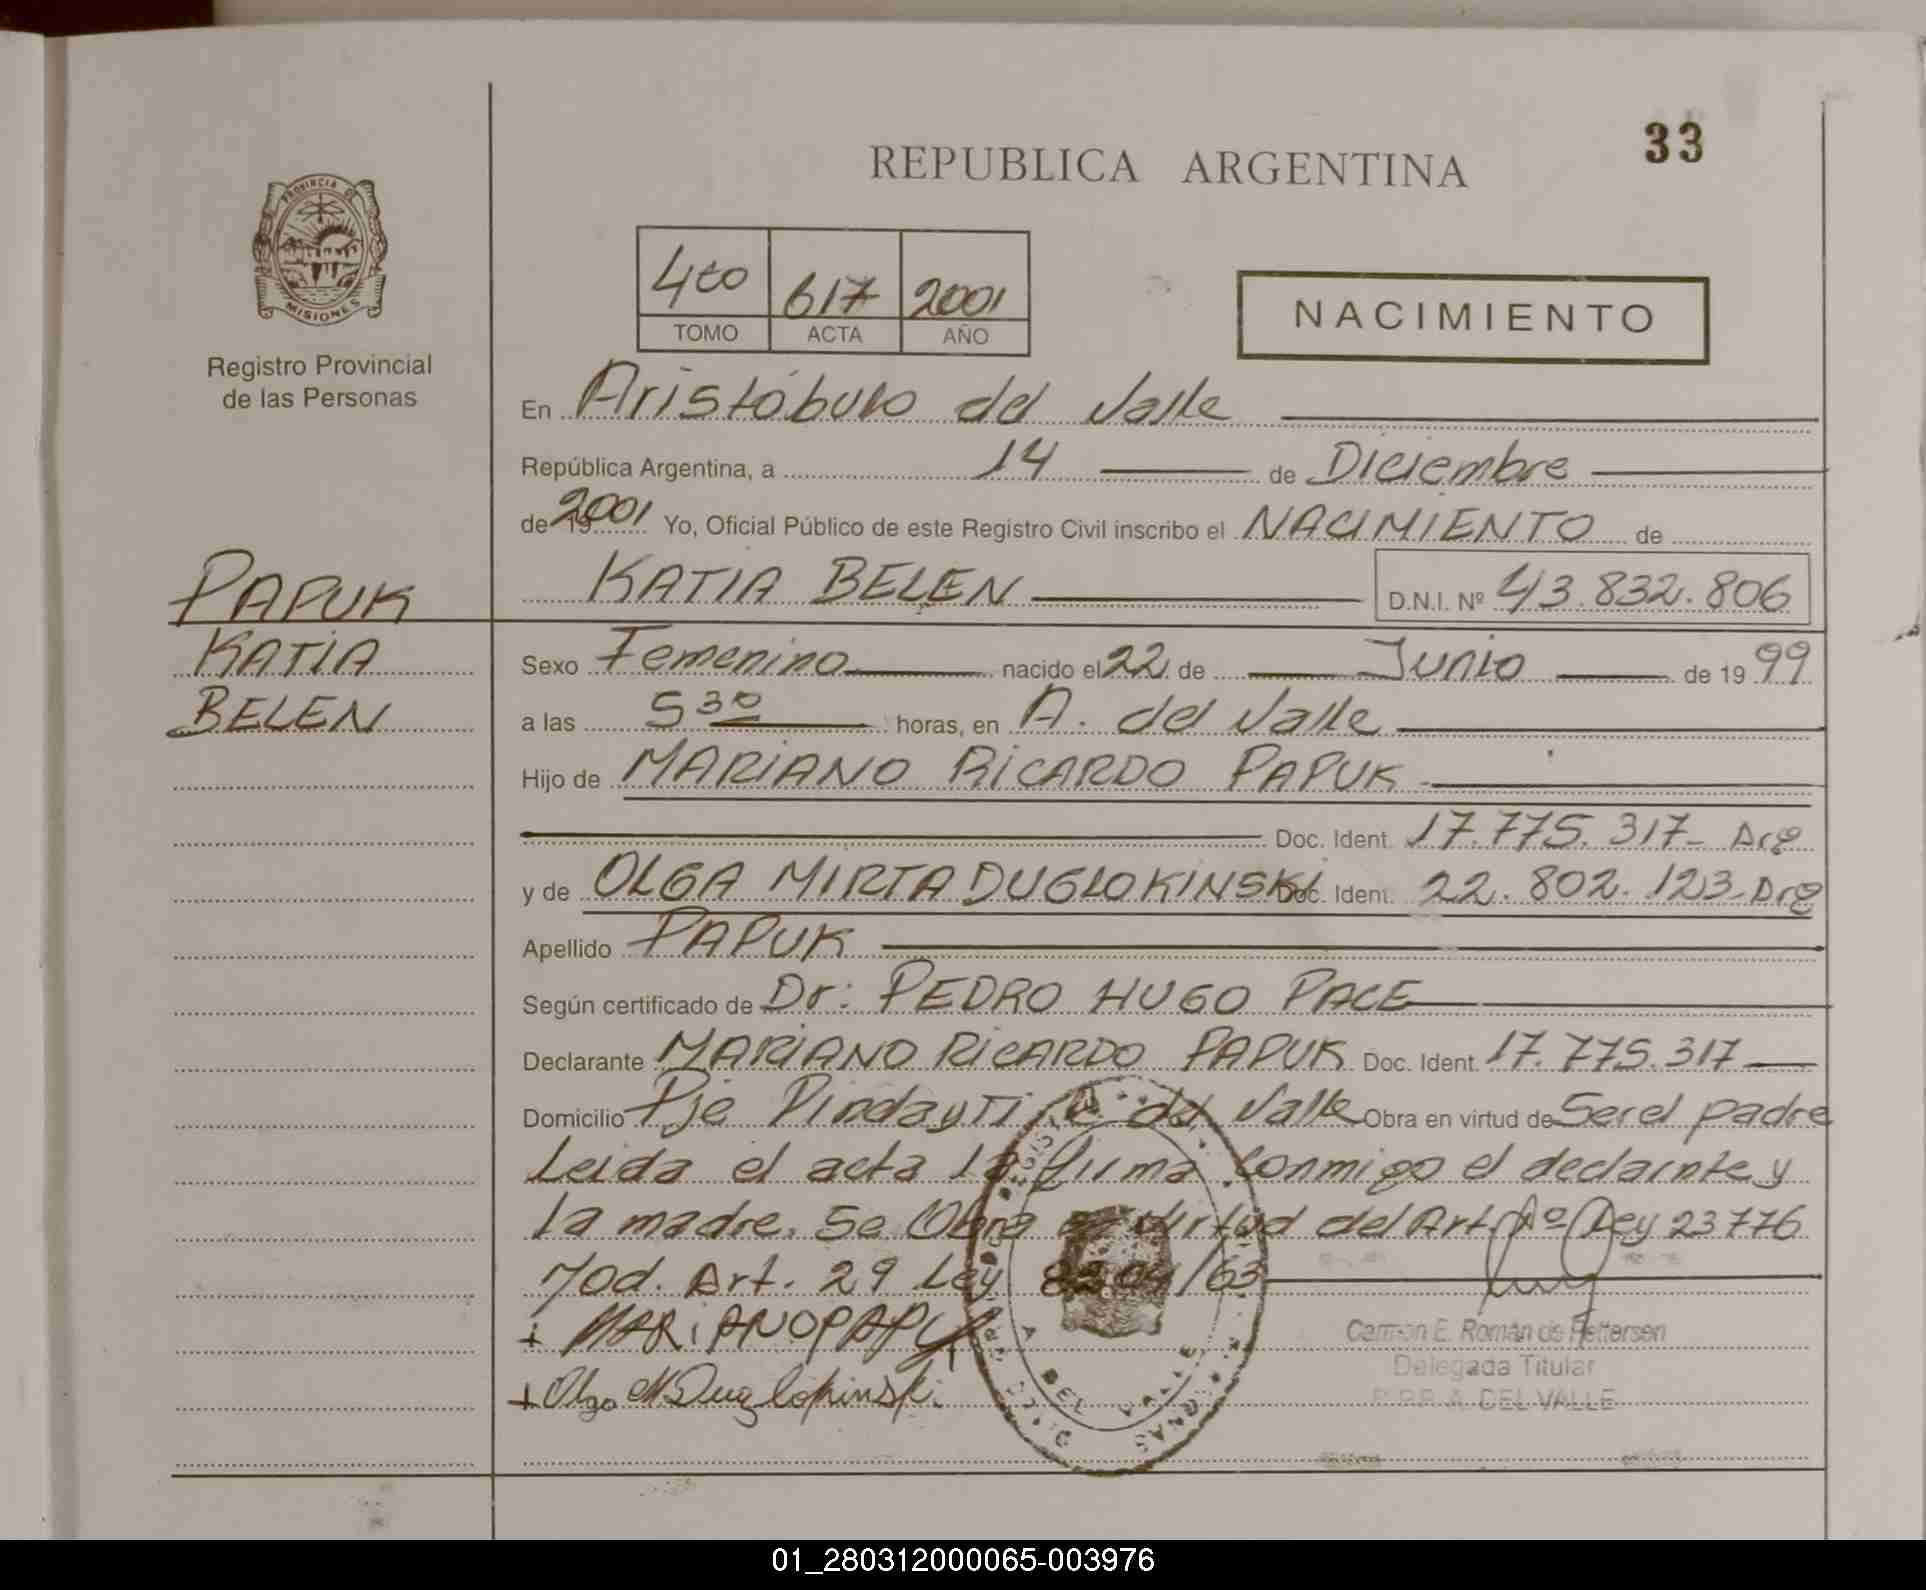 33
REPUBLICA ARGENTINA
PROVINCIA DE
MISIONES
Registro Provincial
de las Personas
4to 617 2001
TOMO ACTA AÑO
NACIMIENTO
En Aristóbulo del Valle
República Argentina, a 14 de Diciembre
de 2001 Yo, Oficial Público de este Registro Civil inscribo el NACIMIENTO de
KATIA BELEN D.N.I. Nº 43.832.806
PAPUK
KATIA
BELEN
Sexo Femenino nacido el 22 de Junio de 1999
a las 5 30 horas, en A. del Valle
Hijo de MARIANO RICARDO PAPUK
Doc. Ident. 17.775.317- Arg
y de OLGA MIRTA DUGLOKINSKI Doc. Ident. 22.802.123- Arg
Apellido PAPUK
Según certificado de Dr: PEDRO HUGO PACE
Declarante MARIANO RICARDO PAPUK Doc. Ident. 17.775.317
Domicilio Pje Pindayti A del Valle Obra en virtud de Ser el padre
Leida el acta la firma conmigo el declarnte y
la madre. Se Obra en virtud del Art. 1º Ley 23776
Mod. Art. 29 Ley 8204/63
+ MARiANO PAPUK
+ Olga M Duglokinski
Carmen E. Román de Pettersen
Delegada Titular
R.P.P. A. DEL VALLE
01_280312000065-003976